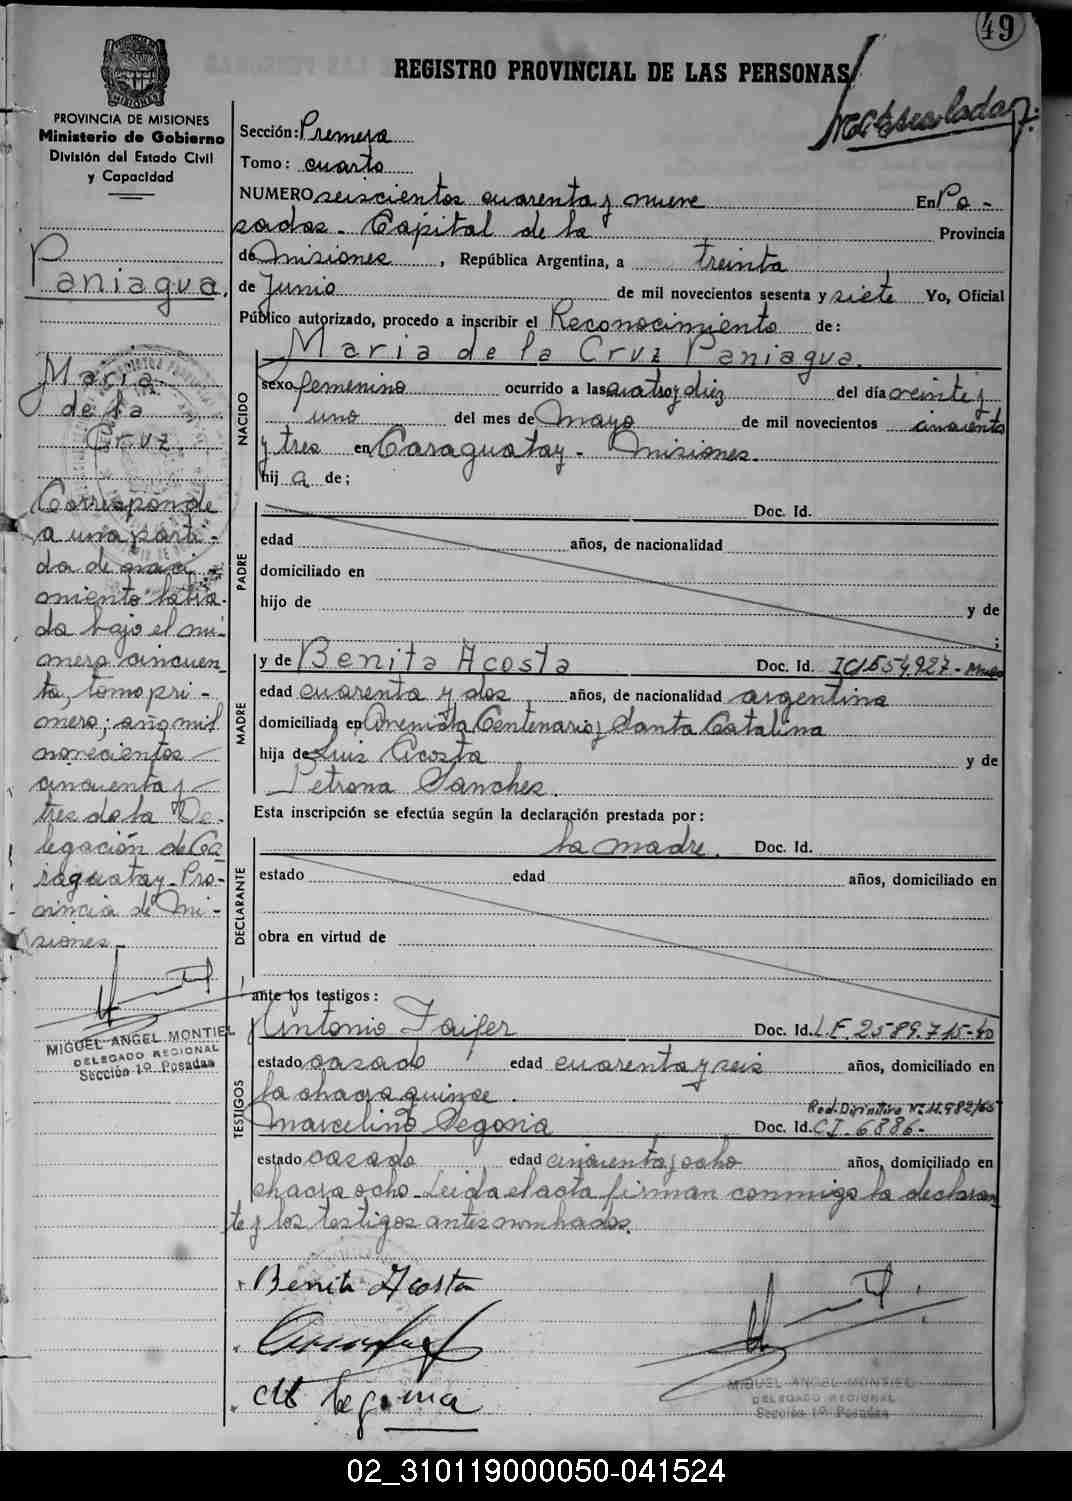 49
REGISTRO PROVINCIAL DE LAS PERSONAS
PROVINCIA DE MISIONES
Ministerio de Gobierno
División del Estado Civil
y Capacidad
Paniagua.
Maria
de la
Cruz
Corresponde
a una parti-
da de naci-
miento labra-
da bajo el nú-
mero cincuen-
ta, tomo pri-
mero; año mil
novecientos
cincuenta y
tres de la De-
legación de Ca
raguatay - Pro-
vincia de Mi-
siones.-
MIGUEL ANGEL MONTIEL
DELEGADO REGIONAL
Sección 1º Posadas
Sección: Primera
Tomo: cuarto
NUMERO seiscientos cuarenta y nueve En Po-
sadas - Capital de la Provincia
de Misiones, República Argentina, a treinta
de Junio de mil novecientos sesenta y siete Yo, Oficial
Público autorizado, procedo a inscribir el Reconocimiento de:
Maria de la Cruz Paniagua.
NACIDO
sexo femenino ocurrido a las cuatro y diez del día veinte y
uno del mes de Mayo de mil novecientos cincuenta
y tres en Caraguatay - Misiones.
hij a de;
PADRE
Doc. Id.
edad años, de nacionalidad
domiciliado en
hijo de y de
;
MADRE
y de Benita Acosta Doc. Id. IC1554.927-
edad cuarenta y dos años, de nacionalidad argentina
domiciliada en Avenida Centenario y Santa Catalina
hija de Luis Acosta y de
Petrona Sanchez.
Esta inscripción se efectúa según la declaración prestada por:
DECLARANTE
la madre. Doc. Id.
estado edad años, domiciliado en
obra en virtud de
ante los testigos:
TESTIGOS
Antonio Doc. Id. L.E. 2589.715-
estado casado edad cuarenta y seis años, domiciliado en
la chacra quince.
Marcelino Segovia Doc. Id. CI. 6886-
estado casado edad cincuenta y ocho años, domiciliado en
chacra ocho. Leida el acta firman conmigo la declaran
te y los testigos antes nombrados.
Benita Acosta
M Segovia
MIGUEL ANGEL MONTIEL
DELEGADO REGIONAL
Sección 1º Posadas
02_310119000050-041524